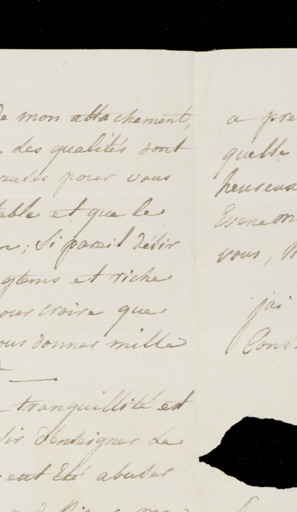 de mon attachement,
des qualités dont
pour vous
table et que le
si pareil désir
gtems et riche
pour croire que
vous donner mille
tranquillité est
d'enseigner de
eut été abuser
a pre
quelle
heureuse
Evenem
vous,
j'ai
Cons